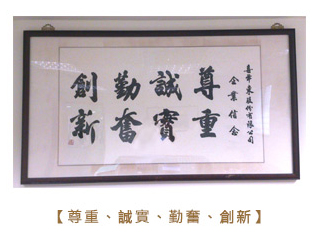 股份有限公司
企業信念
尊重
誠實
勤奮
創新
【尊重、誠實、勤奮、創新】